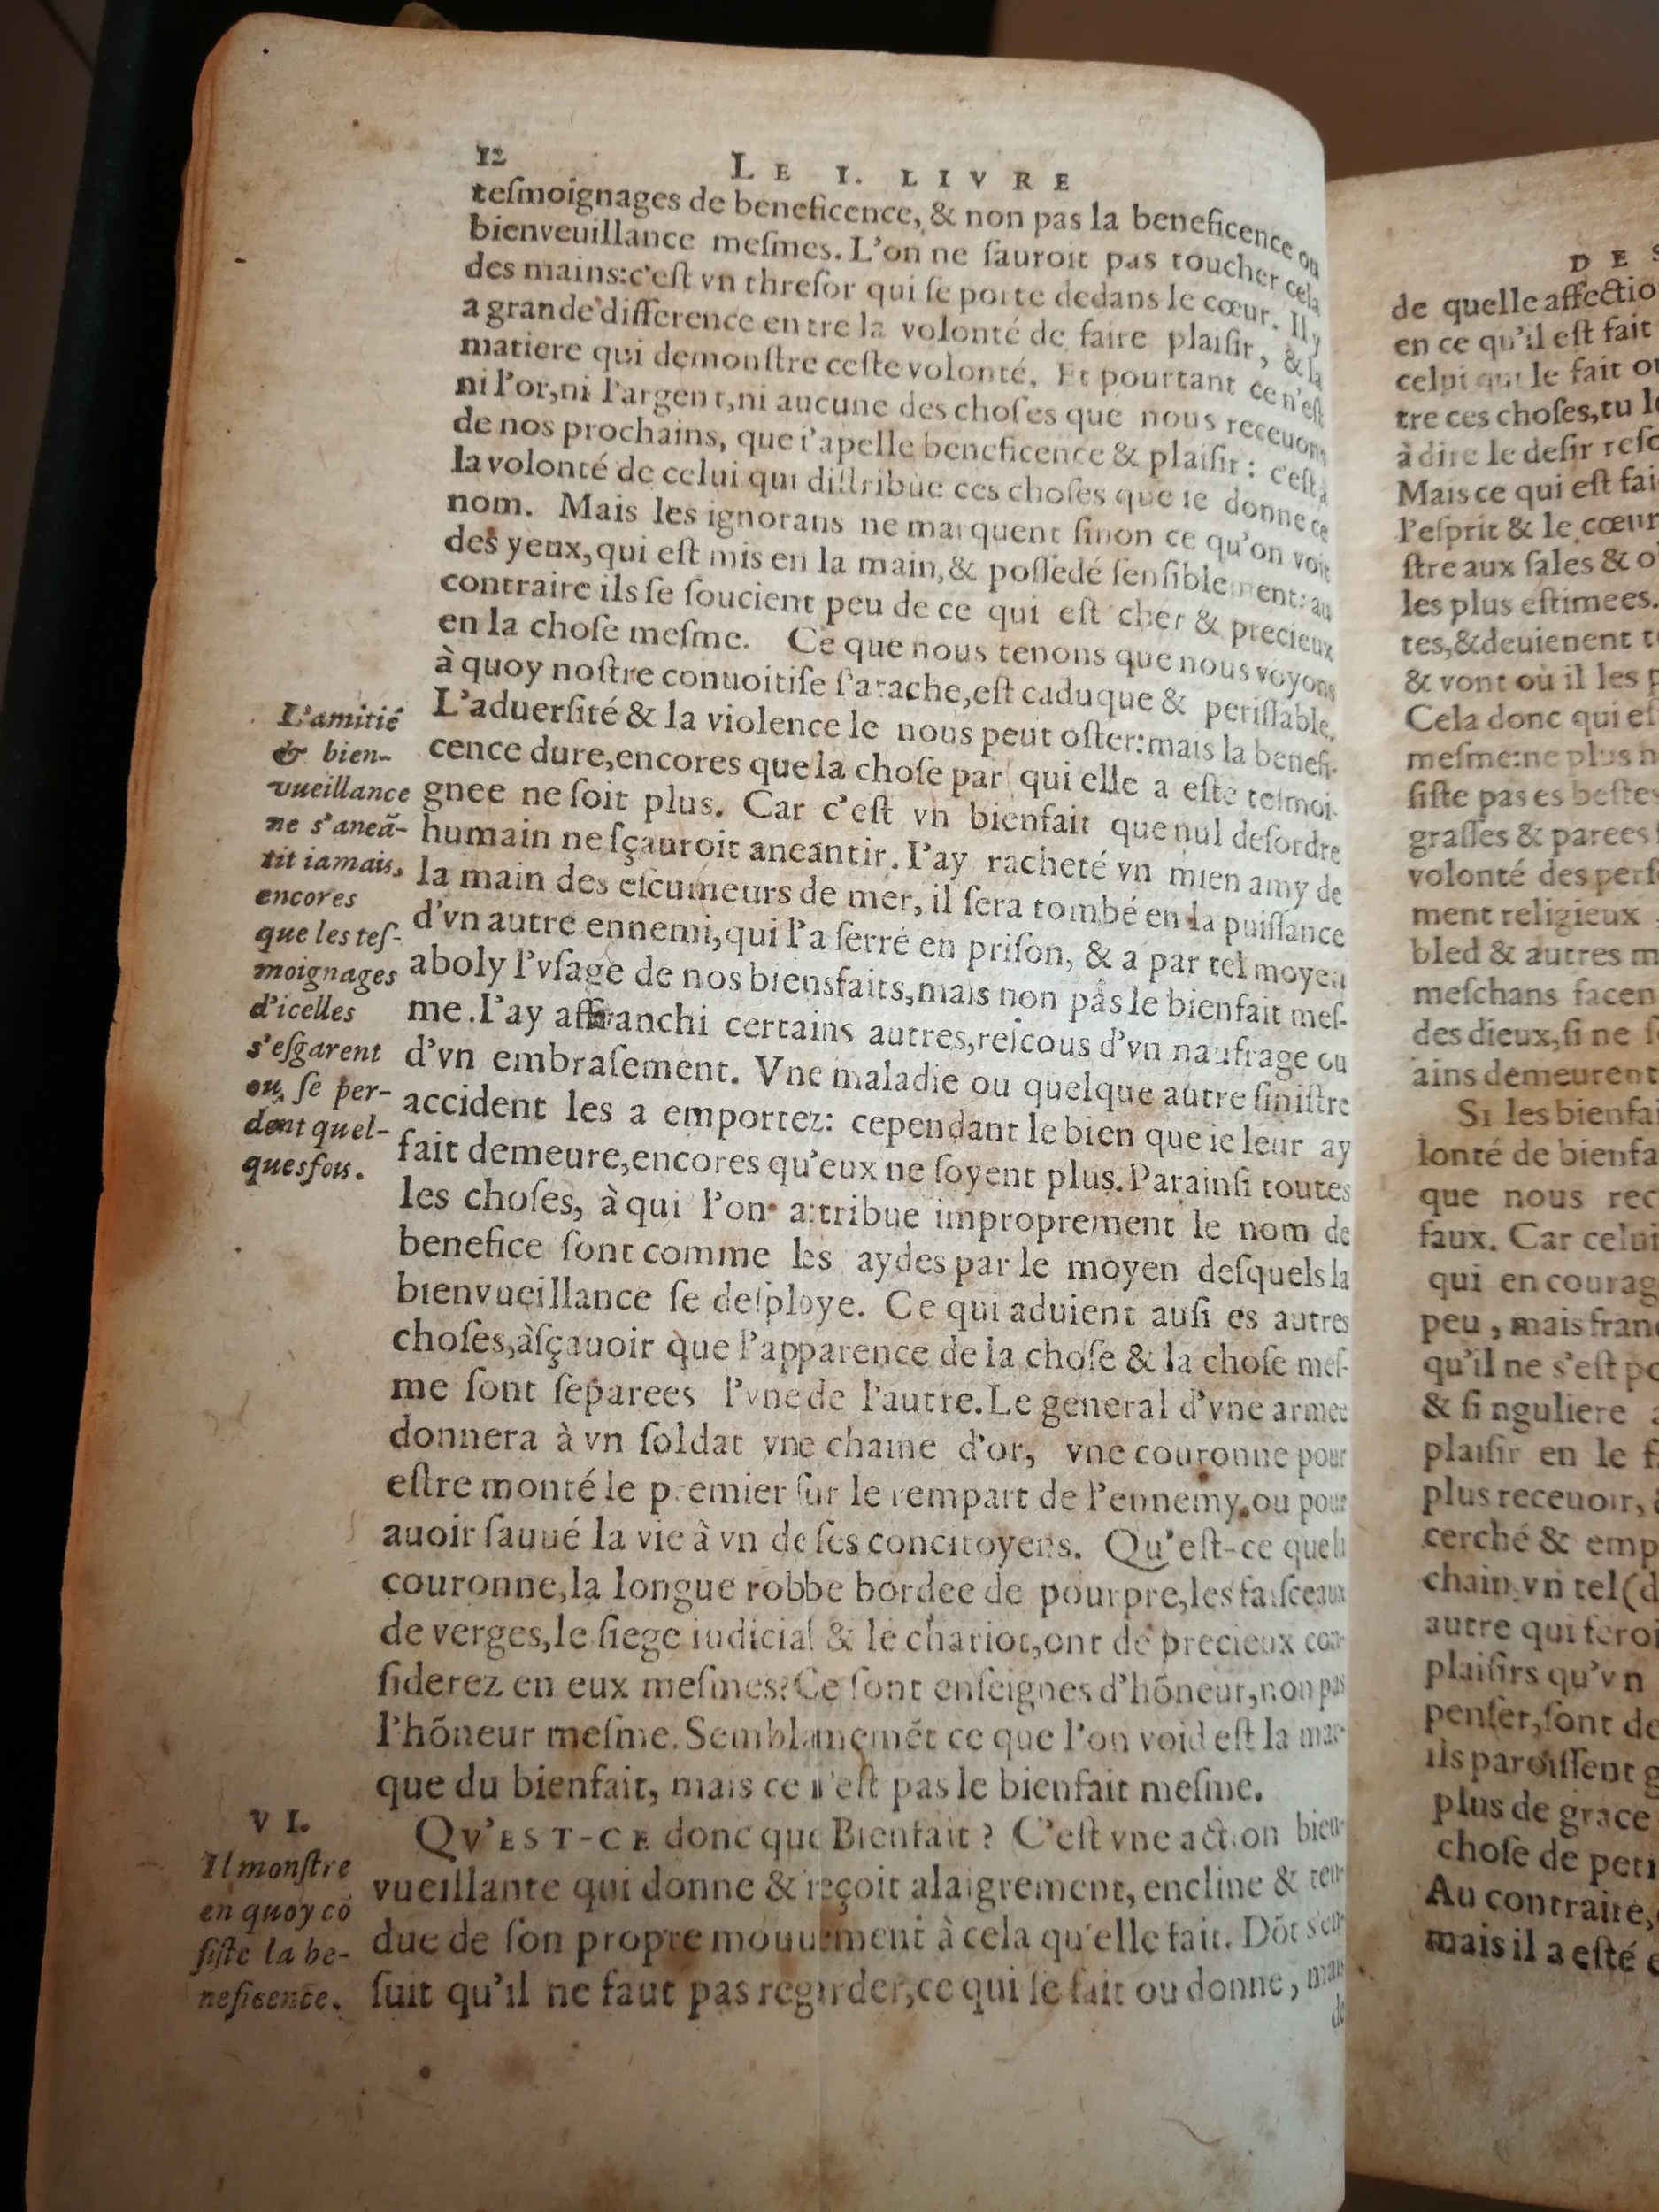 12
LE I. LIVRE
teſmoignages de beneficence, & non pas la beneficence ou
bienveuillance meſmes. L'on ne ſauroit pas toucher cela
des mains:c'eſt vn threſor qui ſe porte dedans le cœur. Il y
a grande difference entre la volonté de faire plaiſir, & la
matiere qui demonſtre ceſte volonté. Et pourtant ce n'eſt
ni l'or,ni l'argent,ni aucune des choſes que nous receuons
de nos prochains, que i'apelle beneficence & plaiſir : c'eſt à
la volonté de celui qui diſtribue ces choſes que ie donne ce
nom. Mais les ignorans ne marquent ſinon ce qu'on voit
des yeux,qui eſt mis en la main,& poſſedé ſenſiblement: au
contraire ils ſe ſoucient peu de ce qui eſt cher & precieux
en la choſe meſme. Ce que nous tenons que nous voyons
à quoy noſtre conuoitiſe s'atache,eſt caduque & periſſable.
L'aduerſité & la violence le nous peut oſter:mais la benefi-
cence dure,encores que la choſe par qui elle a eſté teſmoi-
gnee ne ſoit plus. Car c'eſt vn bienfait que nul deſordre
humain ne ſçauroit aneantir. I'ay racheté vn mien amy de
la main des eſcumeurs de mer, il ſera tombé en la puiſſance
d'vn autre ennemi,qui l'a ſerré en priſon, & a par tel moyen
aboly l'vſage de nos biensfaits,mais non pas le bienfait meſ-
me. I'ay affranchi certains autres,reſcous d'vn naufrage ou
d'vn embraſement. Vne maladie ou quelque autre ſiniſtre
accident les a emportez: cependant le bien que ie leur ay
fait demeure,encores qu'eux ne ſoyent plus. Parainſi toutes
les choſes, à qui l'on attribue improprement le nom de
benefice ſont comme les aydes par le moyen deſquels la
bienvueillance ſe deſploye. Ce qui aduient auſi es autres
choſes,àſçauoir que l'apparence de la choſe & la choſe meſ-
me ſont ſeparees l'vne de l'autre. Le general d'vne armee
donnera à vn ſoldat vne chaine d'or, vne couronne pour
eſtre monté le premier ſur le rempart de l'ennemy,ou pour
auoir ſauué la vie à vn de ſes concitoyens. Qu'eſt-ce que la
couronne,la longue robbe bordee de pourpre,les faiſceaux
de verges,le ſiege iudicial & le chariot,ont de precieux con-
ſiderez en eux meſmes? Ce ſont enſeignes d'hõneur,non pas
l'hõneur meſme. Semblamemẽt ce que l'on void eſt la mar-
que du bienfait, mais ce n'eſt pas le bienfait meſme.
QV'EST-CE donc que Bienfait ? C'eſt vne action bien-
vueillante qui donne & reçoit alaigrement, encline & ten-
due de ſon propre mouuement à cela qu'elle fait. Dõt s'en-
ſuit qu'il ne faut pas regarder,ce qui ſe fait ou donne, mais
de
L'amitié
& bien-
vueillance
ne s'aneã-
tit iamais,
encores
que les teſ-
moignages
d'icelles
s'eſgarent
ou ſe per-
dent quel-
quesfois.
VI.
Il monſtre
en quoy cõ
ſiſte la be-
neficence.
DES
de quelle affectio
en ce qu'il eſt fait
celui qui le fait ou
tre ces choſes,tu le
à dire le deſir reſo
Mais ce qui eſt fai
l'eſprit & le cœur
ſtre aux ſales & o
les plus eſtimees.
tes,& deuienent t
& vont où il les p
Cela donc qui eſ
meſme:ne plus n
ſiſte pas es beſtes
graſſes & parees
volonté des perſ
ment religieux
bled & autres m
meſchans facen
des dieux,ſi ne ſ
ains demeurent
SI les bienfai
lonté de bienfa
que nous rec
faux. Car celui
qui en courag
peu , mais franc
qu'il ne s'eſt po
& ſi nguliere
plaiſir en le f
plus receuoir,
cerché & emp
chain vn tel (d
autre qui feroi
plaiſirs qu'vn
penſer,ſont de
ils paroiſſent g
plus de grace
choſe de peti
Au contraire,
mais il a eſté